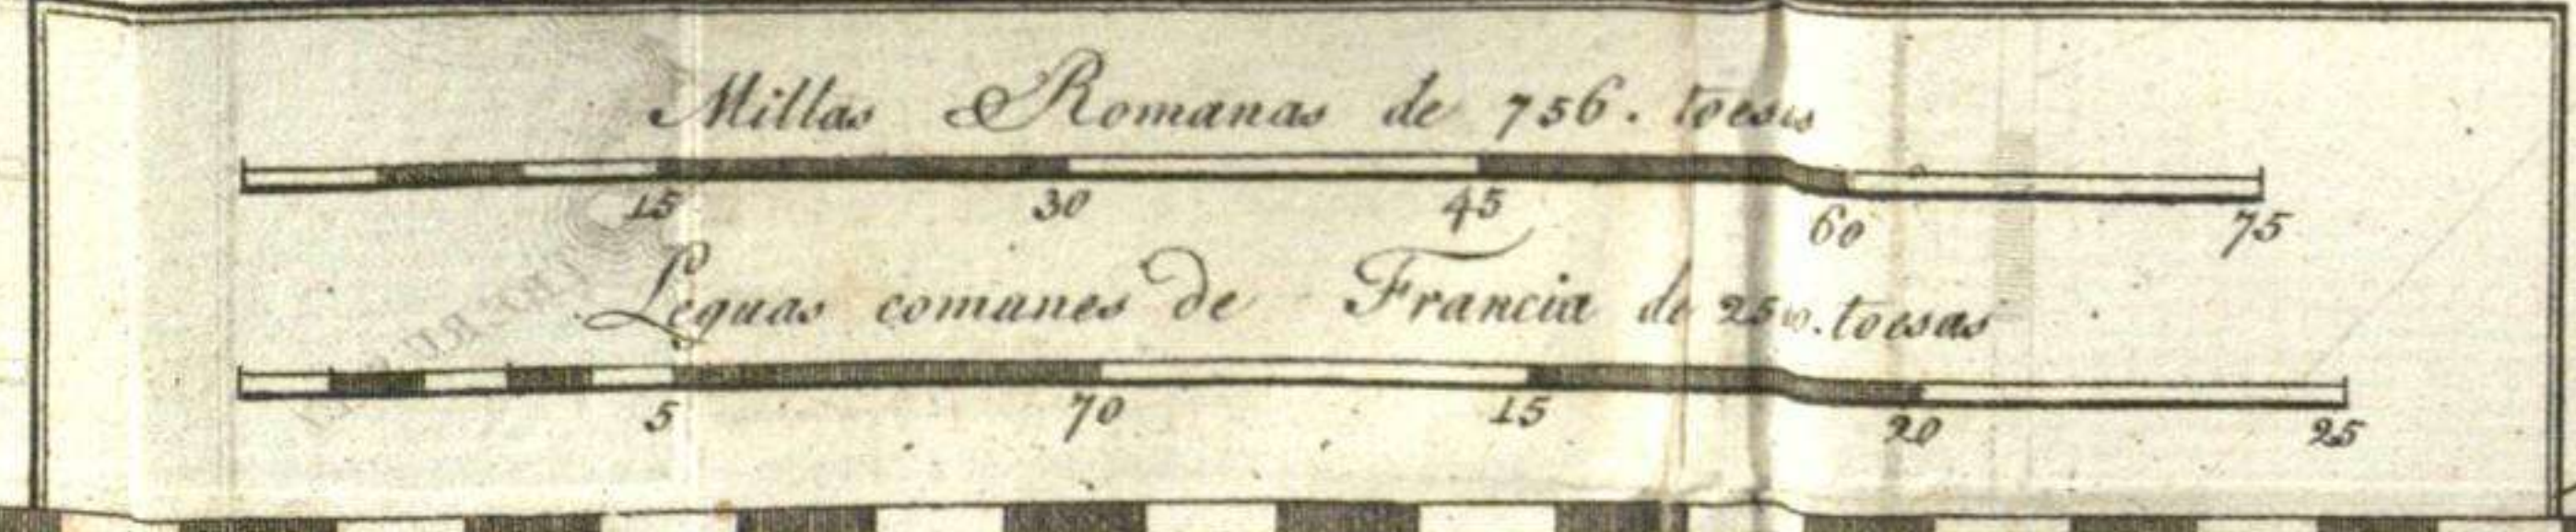 Millas Romanas de 756. toesas
15 30 45 60 75
Leguas comunes de Francia de toesas
5 70 15 20 25